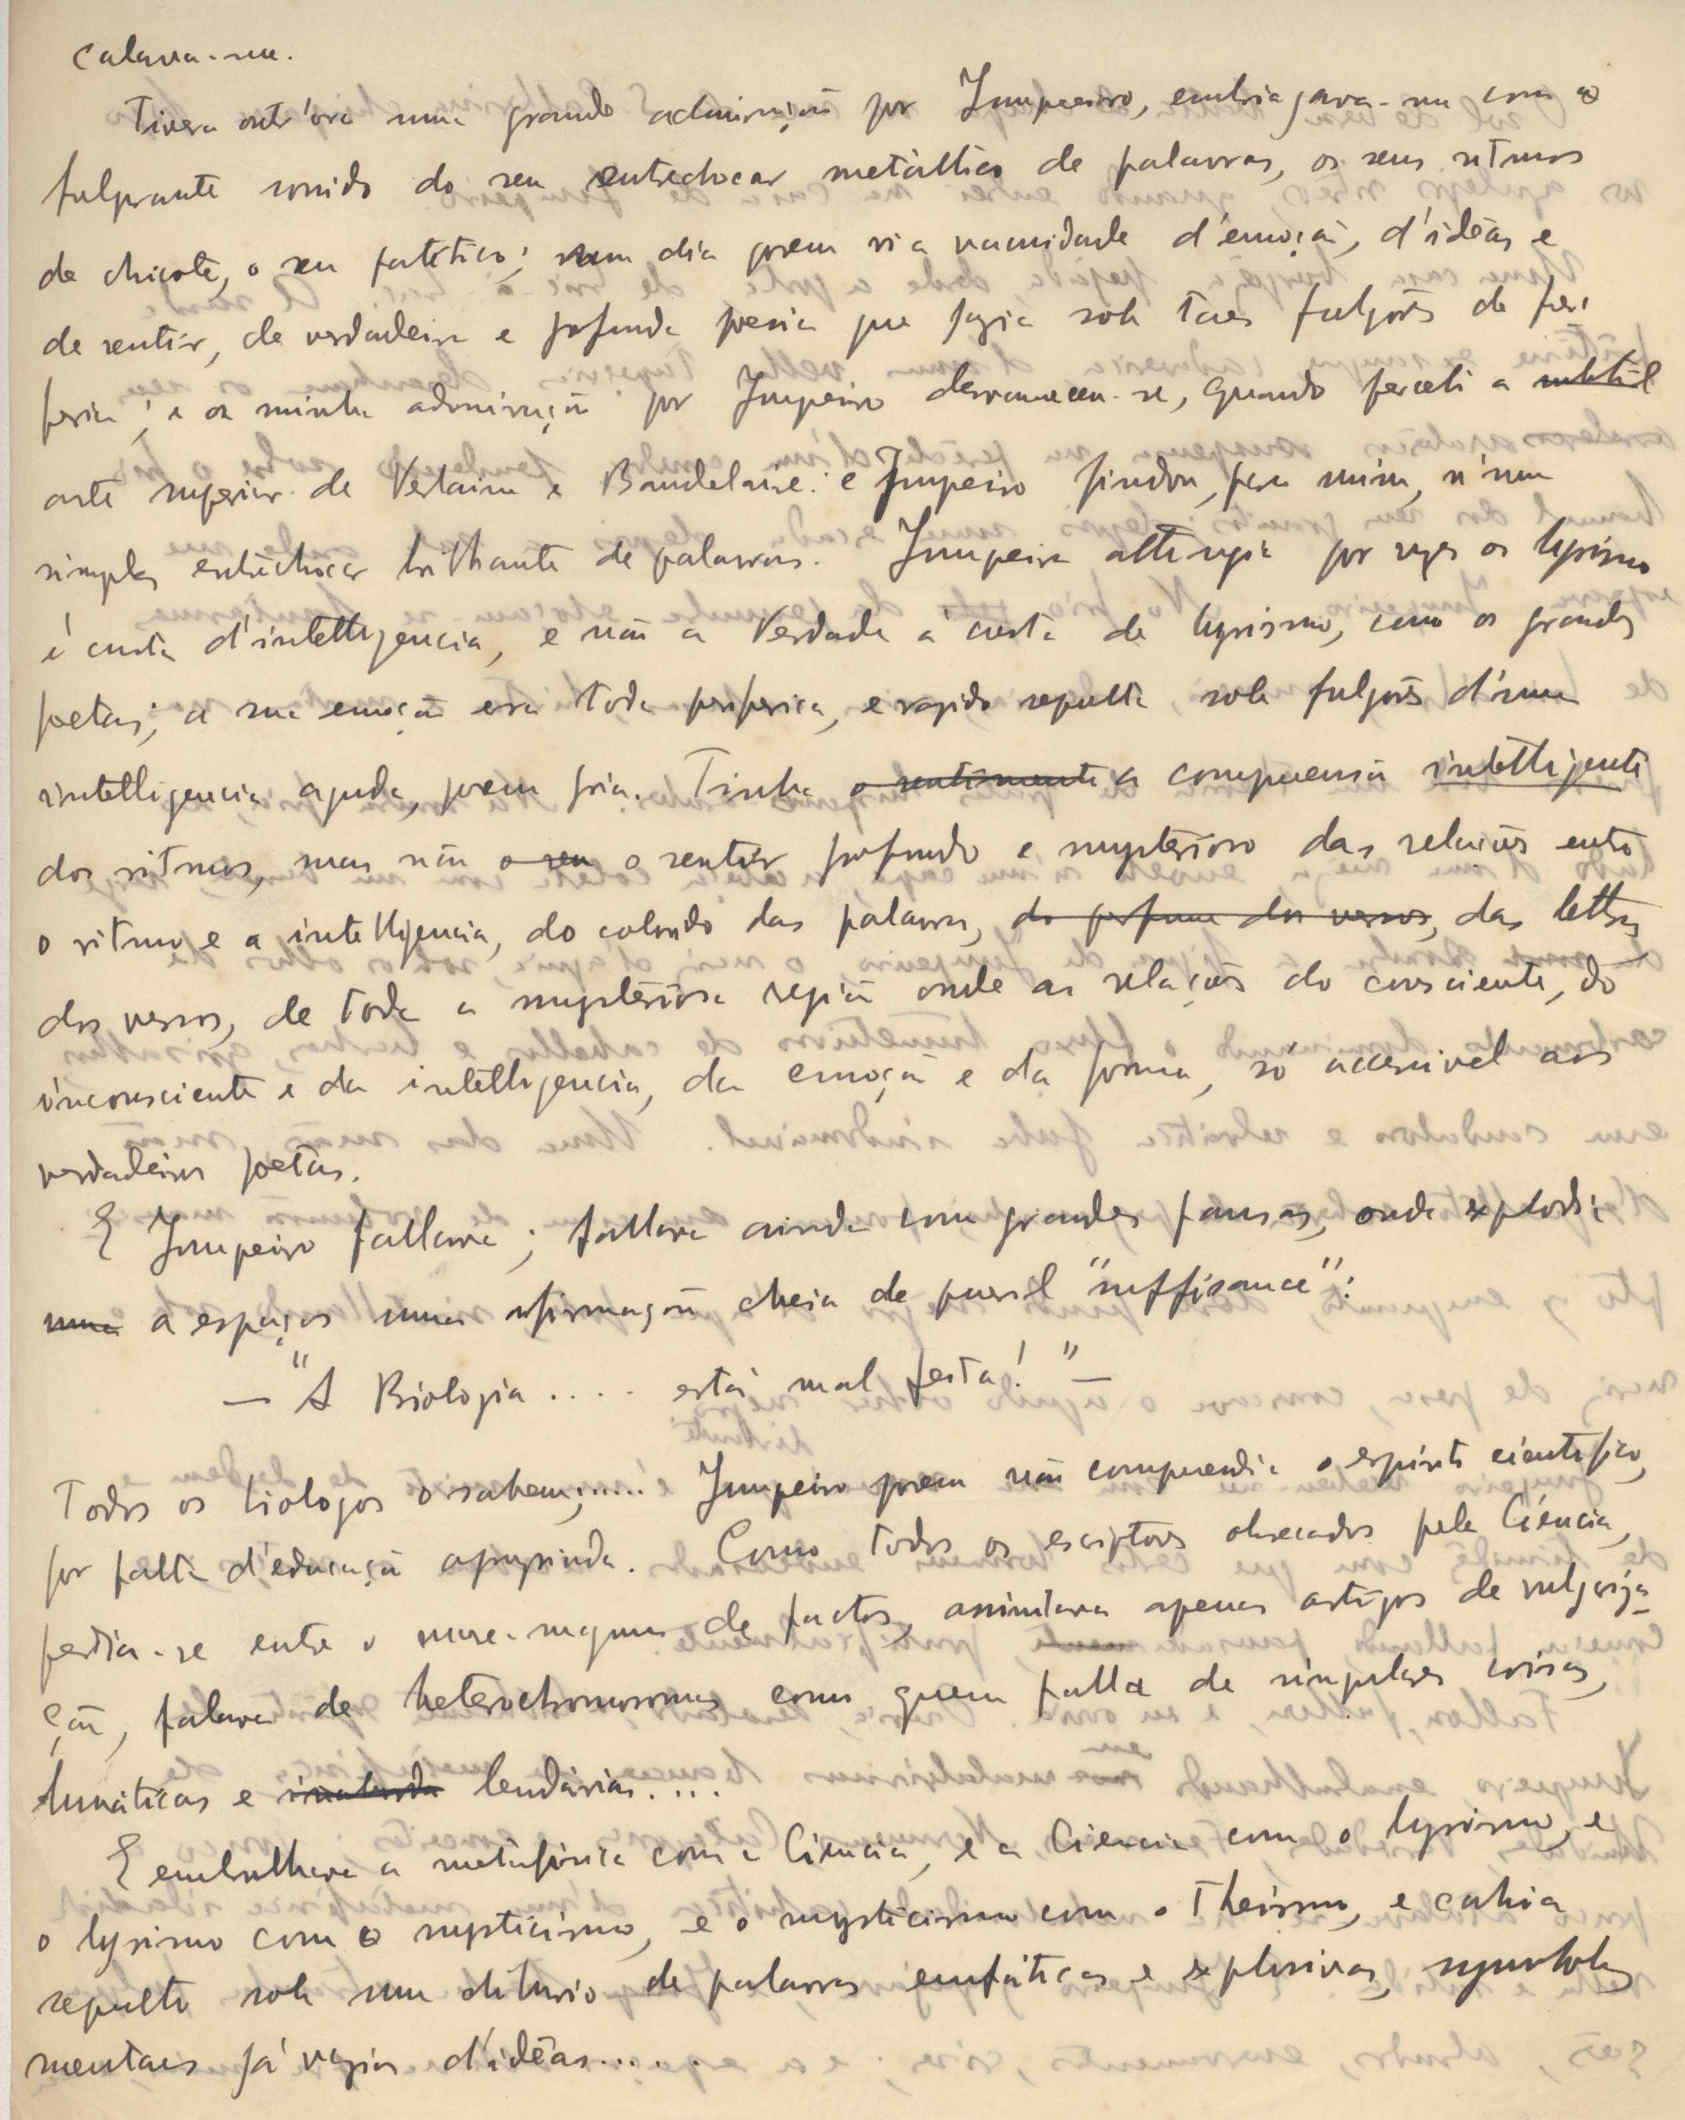 calava-me.
Tivera outr'ora uma grande admiração por Junqueiro, embriagava-me com o
fulgurante sonido do seu entrechocar metallico de palavras, os seus ritmos
de chicote, o seu patetico; num dia porem vi a vacuidade d'emoção, d'idêas e
de sentir, de verdadeira e profunda poesia que jazia sob taes fulgôres de peri
feria; e a minha admiração por Junqueiro desvaneceu-se, quando percebi a subtil
arte superior de Verlaine e Baudelaire: e Junqueiro findou, para mim, n'um
simples entrechocar brilhante de palavras. Junqueiro attingia por vezes o lyrismo
á custa d'intelligencia, e não a Verdade á custa de lyrismo, como os grandes
poetas; a sua emoção era toda periferica, e rapido sepulta sob fulgôres d'uma
intelligencia aguda, porem fria. Tinha o sentimento a comprensão intelligente
dos ritmos, mas não o seu o sentir profundo e mysterioso das relações entre
o ritmo e a intelligencia, do colorido das palavras, do perfume dos versos, das lettras
dos versos, de toda a mysteriosa região onde as relações do consciente, do
inconsciente e da intelligencia, da emoção e da forma, só accessivel aos
verdadeiros poetas.
E Junqueiro fallava; fallava ainda com grandes pausas, onde explodia
uma a espaços uma afirmação cheia de pueril "suffisance":
— "A Biologia .... está mal feita!" —
Todos os biologos o sabem;..... Junqueiro porem não comprendia o espirito cientifico,
por falta d'educação apropriada. Como todos os escriptores obsecados pela Ciencia,
perdia-se entre o mare-magnum de factos, assimilava apenas artigos de vulgariza-
ção, falava de heterochromosomas como quem falla de singulares coisas,
lunáticas e lendárias....
E embrulhava a metafisica com a Ciencia, e a Ciencia com o lyrismo, e
o lyrismo com o mysticismo, e o mysticismo com o Theismo, e cahia
sepulto sob um diluvio de palavras emfáticas e explosivas, symbolos
mentaes já vazios d'idêas.....